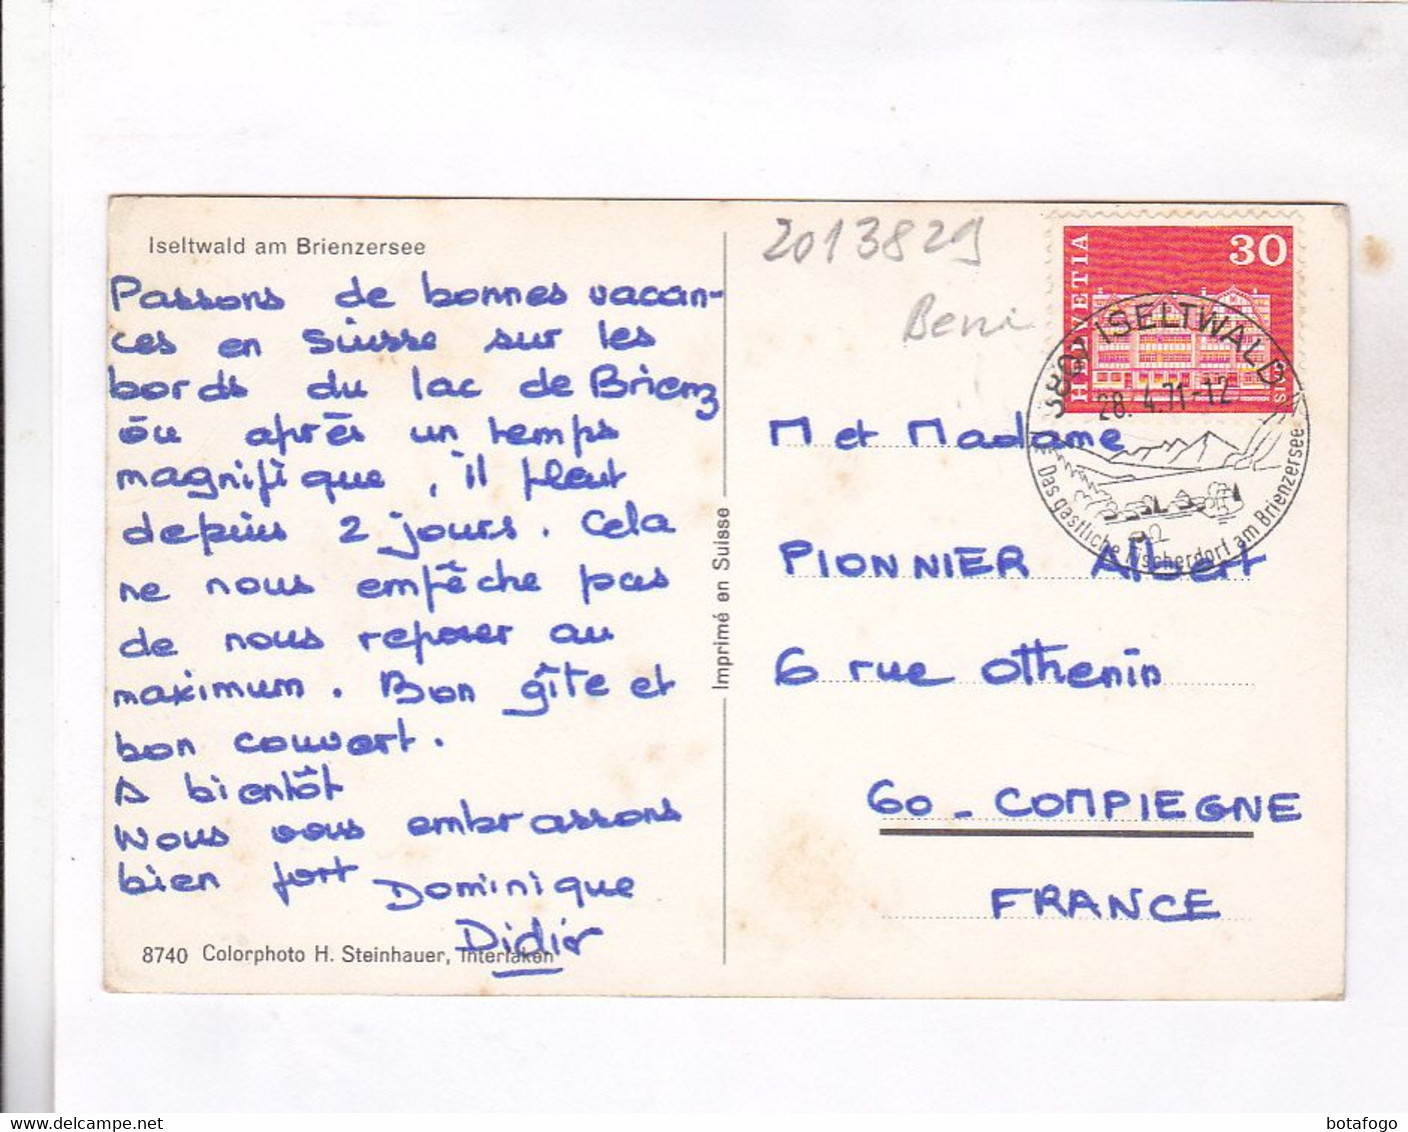 Iseltwald am Brienzersee
Passons de bonnes vacan-
ces en Suisse sur les
bords du lac de Brienz
òu après un temps
magnifique, il pleut
depuis 2 jours. Cela
ne nous empêche pas
de nous reposer au
maximum. Bon gîte et
bon couvert.
A bientôt
Nous vous embrassons
bien fort Dominique
Didier
8740 Colorphoto H. Steinhauer, Interlaken
Imprimé en Suisse
2013829
HELVETIA
30
3807 ISELTWALD
28. 4.71-12
Das gastliche Fischerdorf am Brienzersee
M et Madame
PIONNIER Albert
6 rue Othenin
60 - COMPIEGNE
FRANCE
Delcampe.net
botafogo